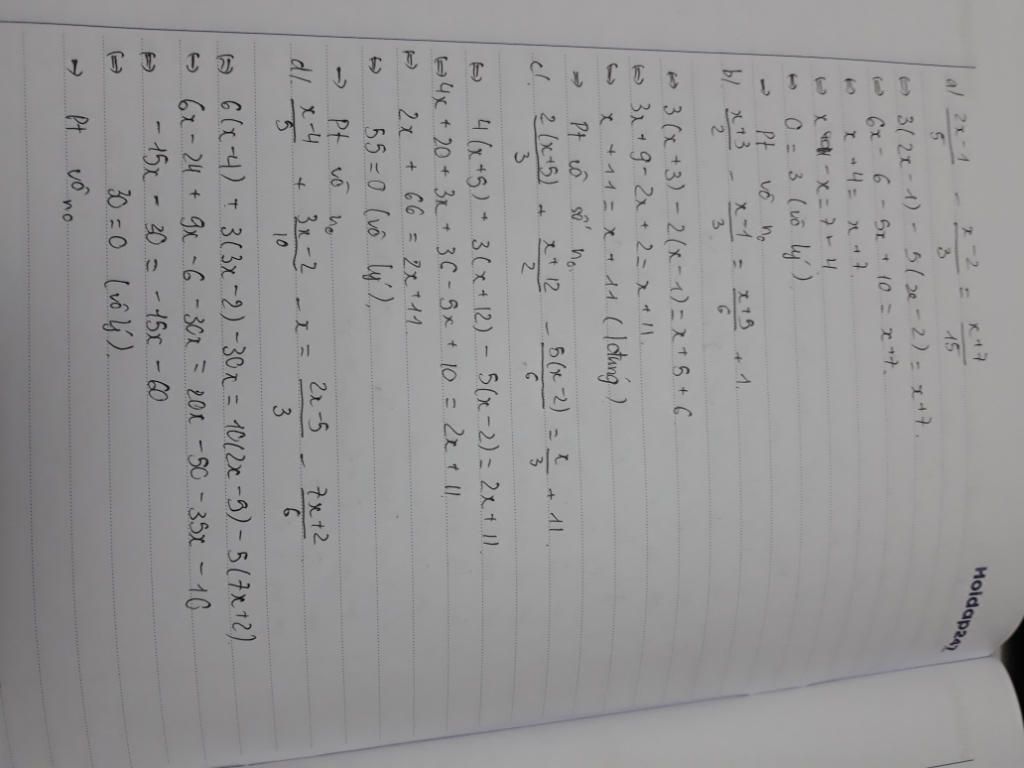 Holdapzay
a) \frac{2x-1}{5} - \frac{x-2}{3} = \frac{x+7}{15}
⇔ 3(2x-1) - 5(x-2) = x+7.
⇔ 6x - 6 - 5x + 10 = x+7.
⇔ x + 4 = x + 7.
⇔ x - x = 7 - 4
⇔ 0 = 3 (vô lý)
→ Pt vô n₀
b) \frac{x+3}{2} - \frac{x-1}{3} = \frac{x+5}{6} + 1.
⇔ 3(x+3) - 2(x-1) = x+5+6
⇔ 3x + 9 - 2x + 2 = x + 11.
⇔ x + 11 = x + 11 (đúng)
→ Pt vô số n₀.
c) \frac{2(x+5)}{3} + \frac{x+12}{2} - \frac{5(x-2)}{6} = \frac{x}{3} + 11.
⇔ 4(x+5) + 3(x+12) - 5(x-2) = 2x + 11.
⇔ 4x + 20 + 3x + 36 - 5x + 10 = 2x + 11
⇔ 2x + 66 = 2x + 11
⇔ 55 = 0 (vô lý).
→ Pt vô n₀
d) \frac{x-4}{5} + \frac{3x-2}{10} - x = \frac{2x-5}{3} - \frac{7x+2}{6}
⇔ 6(x-4) + 3(3x-2) - 30x = 10(2x-5) - 5(7x+2)
⇔ 6x - 24 + 9x - 6 - 30x = 20x - 50 - 35x - 10
⇔ -15x - 30 = -15x - 60
⇔ 30 = 0 (vô lý).
→ Pt vô n₀